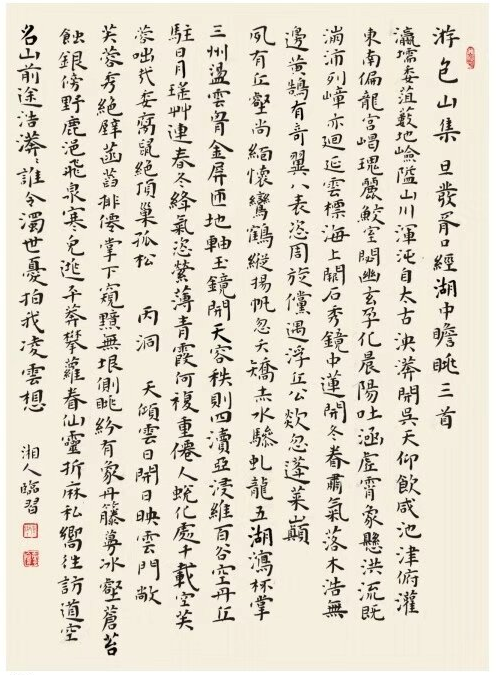 游包山集 旦發胥口經湖中瞻眺三首
瀛壖委菹藪地嶮隘山川渾沌自太古泱漭開吳天仰飲咸池津俯灌
東南偏龍宮嵑瑰麗鮫室閟幽玄孕化晨陽吐涵虛霄象懸洪流既
湍沛列嶂亦迴延雲標海上闕石秀鏡中蓮開冬春肅氣落木浩無
邊黃鵠有奇翼八表恣周旋儻遇浮丘公歘忽蓬萊巔
夙有丘壑尚緬懷鸞鶴縱揚帆忽天矯赤水驂虬龍五湖瀉杯掌
三州盪雲胷金屏匝地軸玉鏡開天容秩則四瀆亞浸維百谷空丹丘
駐日月瑤艸連春冬絳氣恣縈薄青霞何複重僊人蛻化處千載空芙
蓉咄哉委腐鼠絕頂巢孤松 丙洞 天傾雲日開日映雲門敞
芙蓉秀絕壁菡萏排僊掌下窺黯無垠側眺紛有象丹籐蓴冰壑蒼苔
蝕銀傍野鹿浥飛泉寒兔逃平莽攀蘿春仙靈折麻私嚮往訪道空
名山前途浩漭漭誰令濁世憂拍我凌雲想 湘人臨習